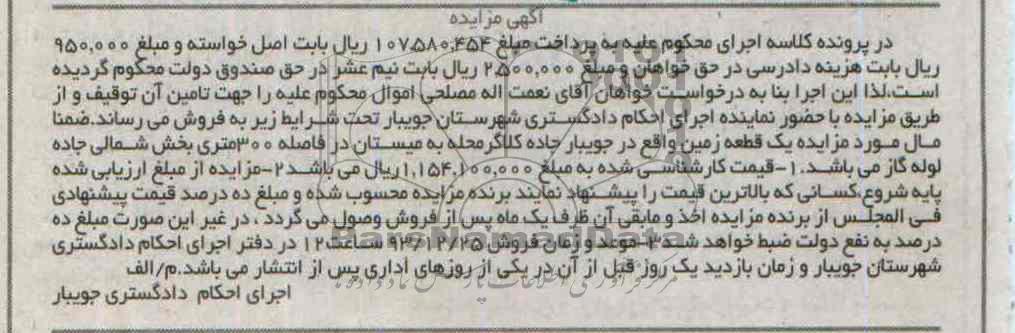 آگهی مزایده
در پرونده کلاسه اجرای محکوم علیه به پرداخت مبلغ ۱۰۷،۵۸۰،۴۵۴ ریال بابت اصل خواسته و مبلغ ۹۵۰،۰۰۰
ریال بابت هزینه دادرسی در حق خواهان و مبلغ ۲،۵۰۰،۰۰۰ ریال بابت نیم عشر در حق صندوق دولت محکوم گردیده
است،لذا این اجرا بنا به درخواست خواهان آقای نعمت اله مصلحی اموال محکوم علیه را جهت تامین آن توقیف و از
طریق مزایده با حضور نماینده اجرای احکام دادگستری شهرستان جویبار تحت شرایط زیر به فروش می رساند.ضمنا
مال مورد مزایده یک قطعه زمین واقع در جویبار جاده کلاگر محله به میستان در فاصله ۳۰۰متری بخش شمالی جاده
لوله گاز می باشد.۱-قیمت کارشناسی شده به مبلغ ۱،۱۵۴،۱۰۰،۰۰۰ریال می باشد۲-مزایده از مبلغ ارزیابی شده
پایه شروع،کسانی که بالاترین قیمت را پیشنهاد نمایند برنده مزایده محسوب شده و مبلغ ده درصد قیمت پیشنهادی
فی المجلس از برنده مزایده اخذ و مابقی آن ظرف یک ماه پس از فروش وصول می گردد ، در غیر این صورت مبلغ ده
درصد به نفع دولت ضبط خواهد شد۳-موعد و زمان فروش ۹۲/۱۲/۲۵ ساعت ۱۲ در دفتر اجرای احکام دادگستری
شهرستان جویبار و زمان بازدید یک روز قبل از آن در یکی از روزهای اداری پس از انتشار می باشد.م/الف
اجرای احکام دادگستری جویبار
ParsNamadData
مرکز فرآوری اطلاعات پارس نماد داده ها